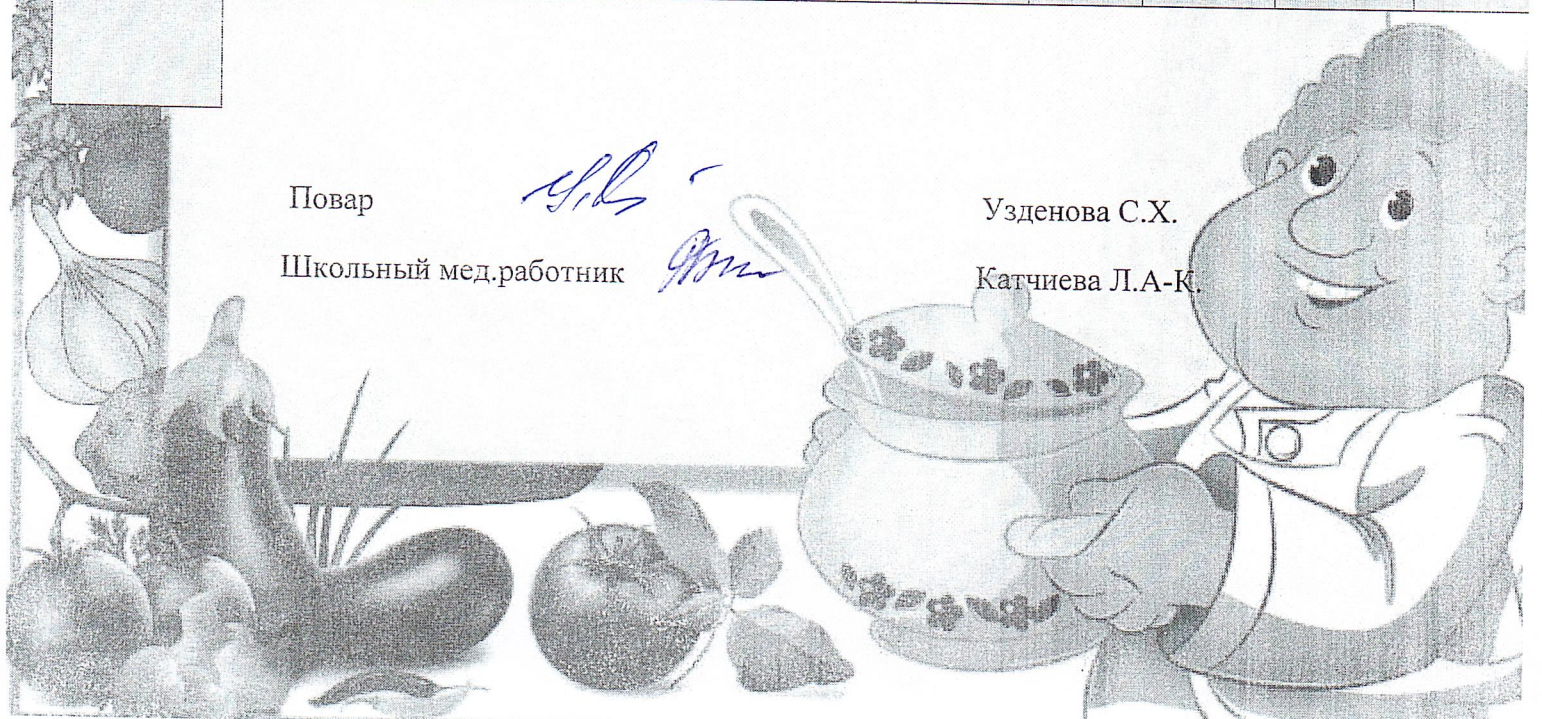 Повар Узденова С.Х.
Школьный мед.работник Катчиева Л.А-К.